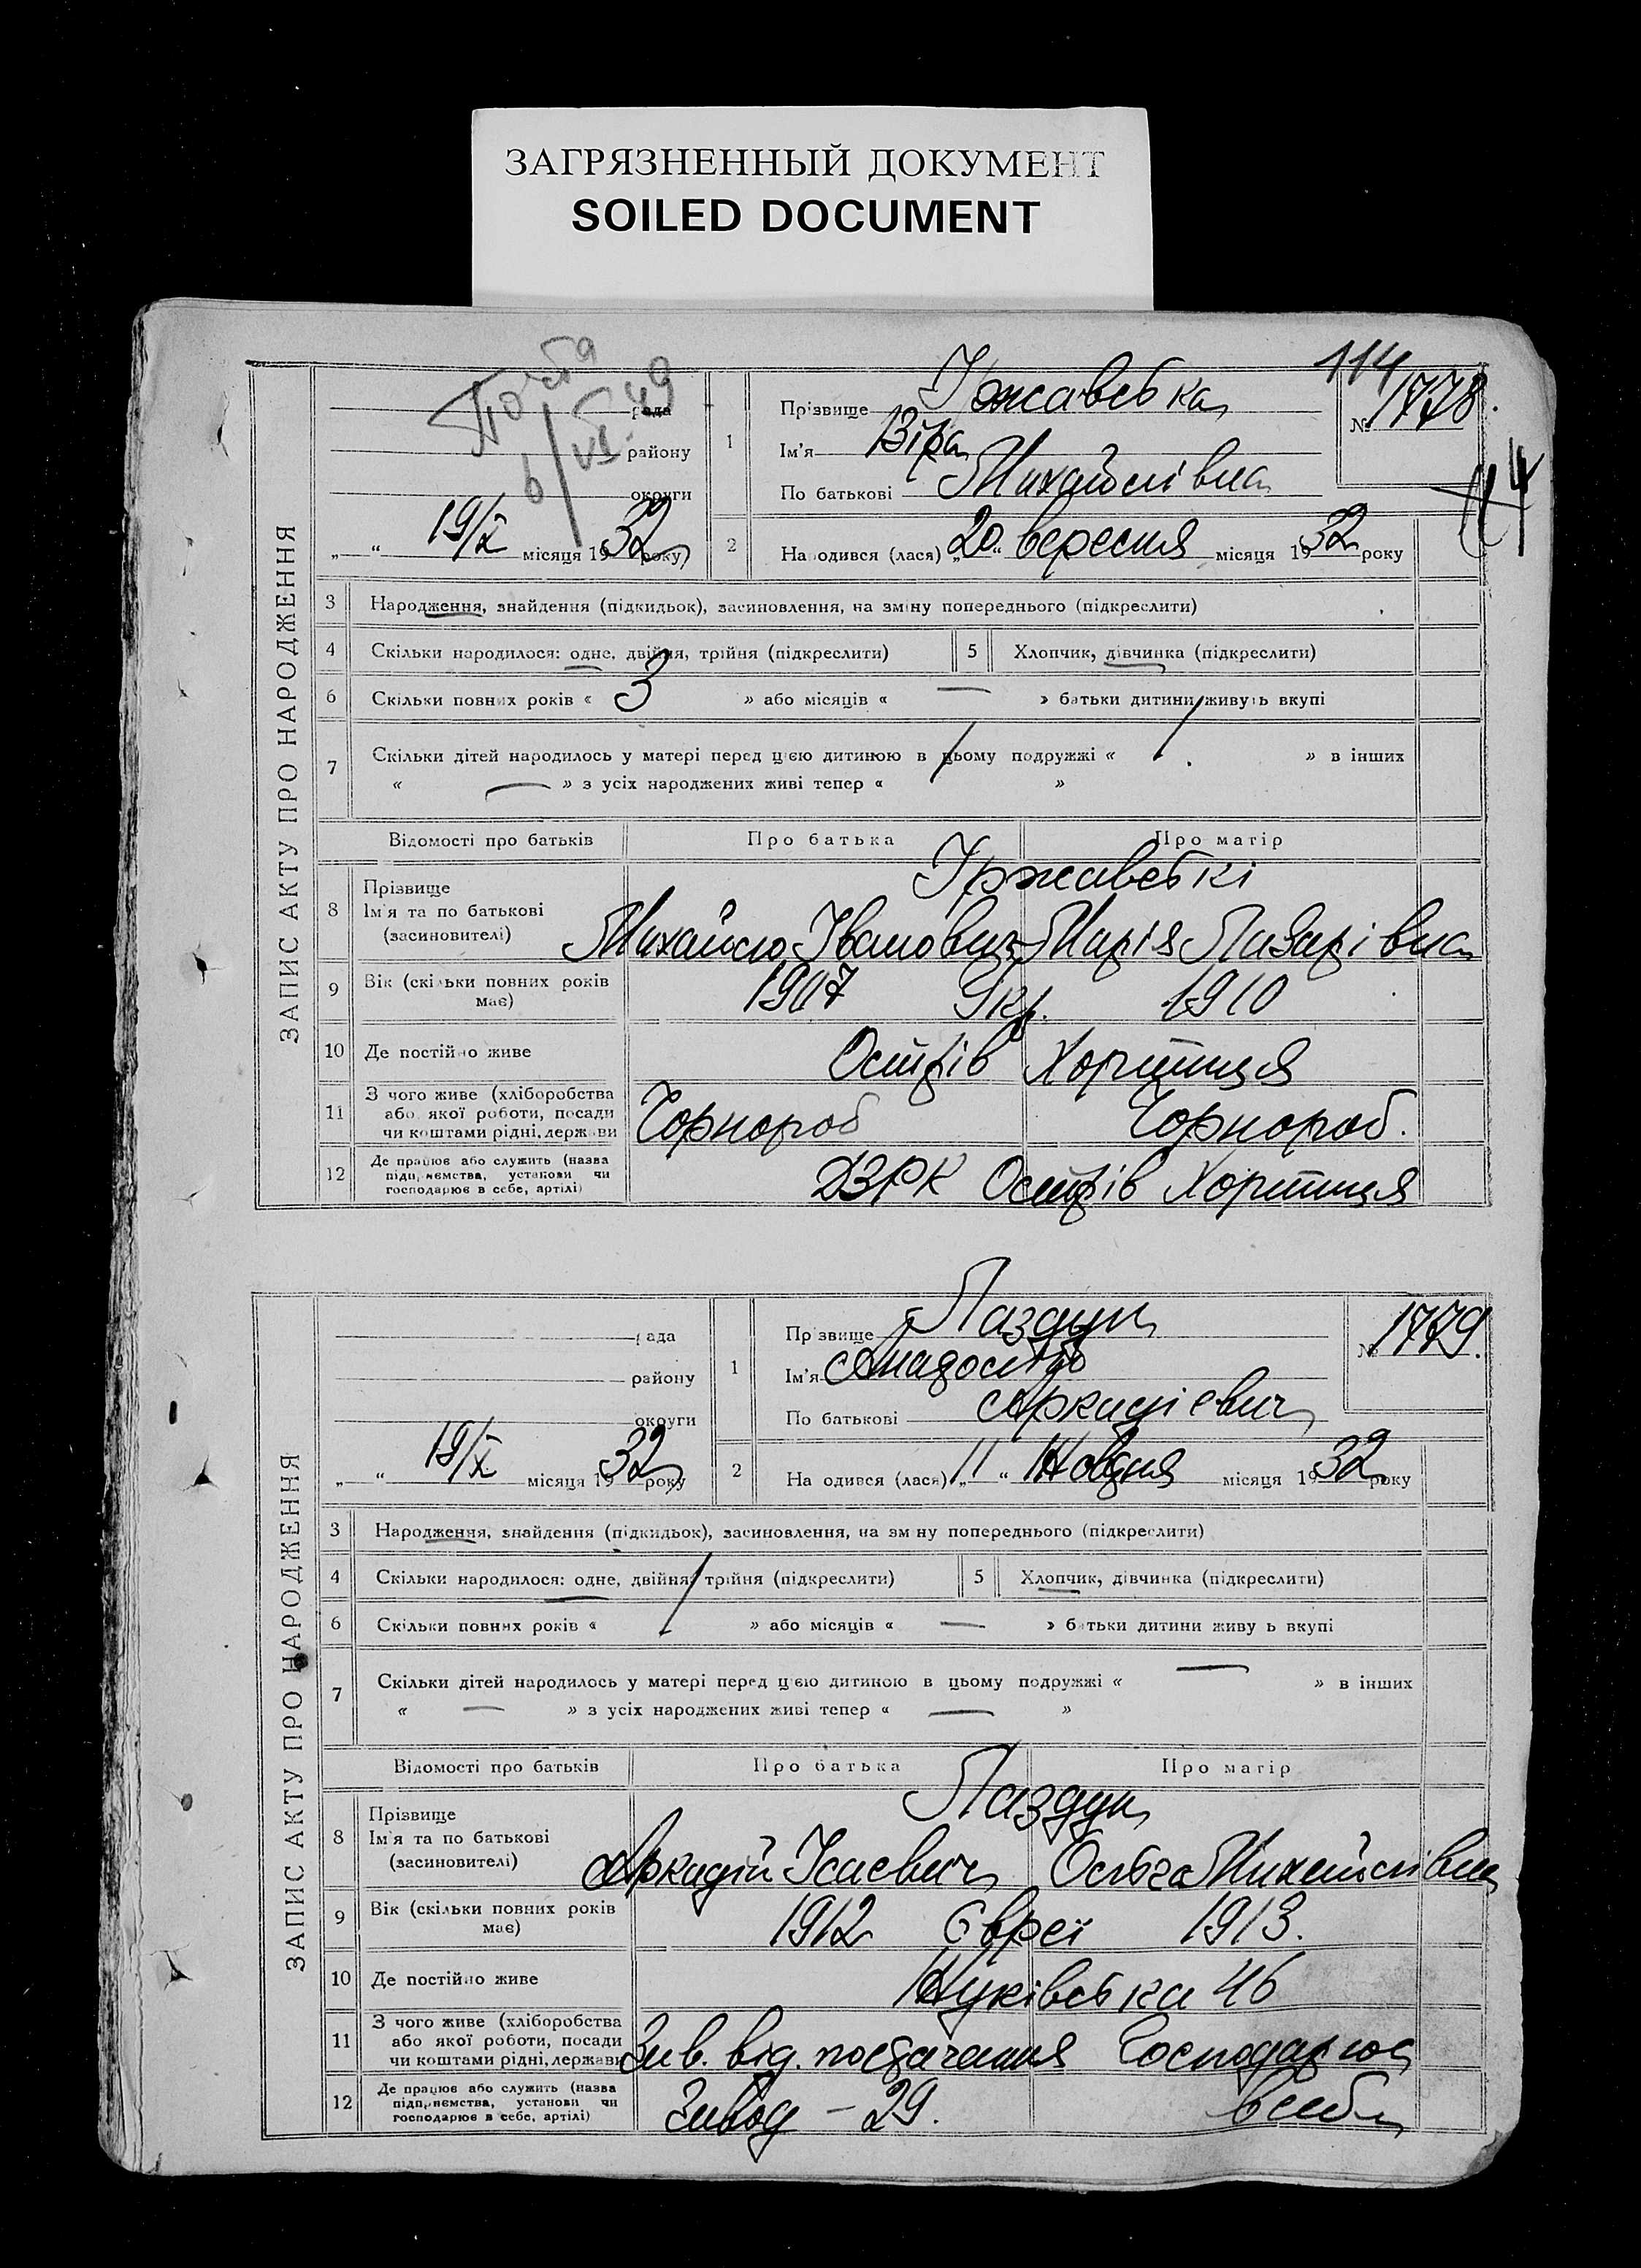 ЗАГРЯЗНЕННЫЙ ДОКУМЕНТ
SOILED DOCUMENT
114
ЗАПИС АКТУ ПРО НАРОДЖЕННЯ
Пошта
6/VI 49
рада
району
округи
„ “ 19/X місяця 1932 року
1
Прізвище Іржавська
Ім'я Віра
По батькові Михайлівна
№ 1778.
44
2
Народився (лася) „20“ вересня місяця 1932 року
3 Народження, знайдення (підкидьок), засиновлення, на зміну попереднього (підкреслити)
4 Скільки народилося: одне, двійня, трійня (підкреслити)
5 Хлопчик, дівчинка (підкреслити)
6 Скільки повних років « 3 » або місяців « — » батьки дитини живуть вкупі
7 Скільки дітей народилось у матері перед цією дитиною в цьому подружжі « 1 » в інших
« — » з усіх народжених живі тепер « 1 »
Відомості про батьків Про батька Про матір
8 Прізвище Іржавські
Ім'я та по батькові
(засиновителі) Михайло Іванович Марія Лазарівна
9 Вік (скільки повних років має) 1907 Укр. 1910
10 Де постійно живе Острів Хортиця
11 З чого живе (хліборобства
або якої роботи, посади
чи коштами рідні, держави Чорнороб Чорнороб.
12 Де працює або служить (назва
підприємства, установи чи
господарює в себе, артілі) ДЗРК Острів Хортиця
ЗАПИС АКТУ ПРО НАРОДЖЕННЯ
рада
району
округи
„ “ 19/X місяця 1932 року
1
Прізвище Лаздун
Ім'я Анадолій
По батькові Аркадієвич
№ 1779.
2
Народився (лася) „11“ Жовдня місяця 1932 року
3 Народження, знайдення (підкидьок), засиновлення, на зміну попереднього (підкреслити)
4 Скільки народилося: одне, двійня, трійня (підкреслити)
5 Хлопчик, дівчинка (підкреслити)
6 Скільки повних років « 1 » або місяців « — » батьки дитини живуть вкупі
7 Скільки дітей народилось у матері перед цією дитиною в цьому подружжі « — » в інших
« — » з усіх народжених живі тепер « — »
Відомості про батьків Про батька Про матір
8 Прізвище Лаздун
Ім'я та по батькові
(засиновителі) Аркадій Ісаєвич Ольга Михайлівна
9 Вік (скільки повних років має) 1912 Євреї 1913.
10 Де постійно живе Жуківська 46
11 З чого живе (хліборобства
або якої роботи, посади
чи коштами рідні, держави Зав. від. постачання Господарює
12 Де працює або служить (назва
підприємства, установи чи
господарює в себе, артілі) Завод – 29. в себе